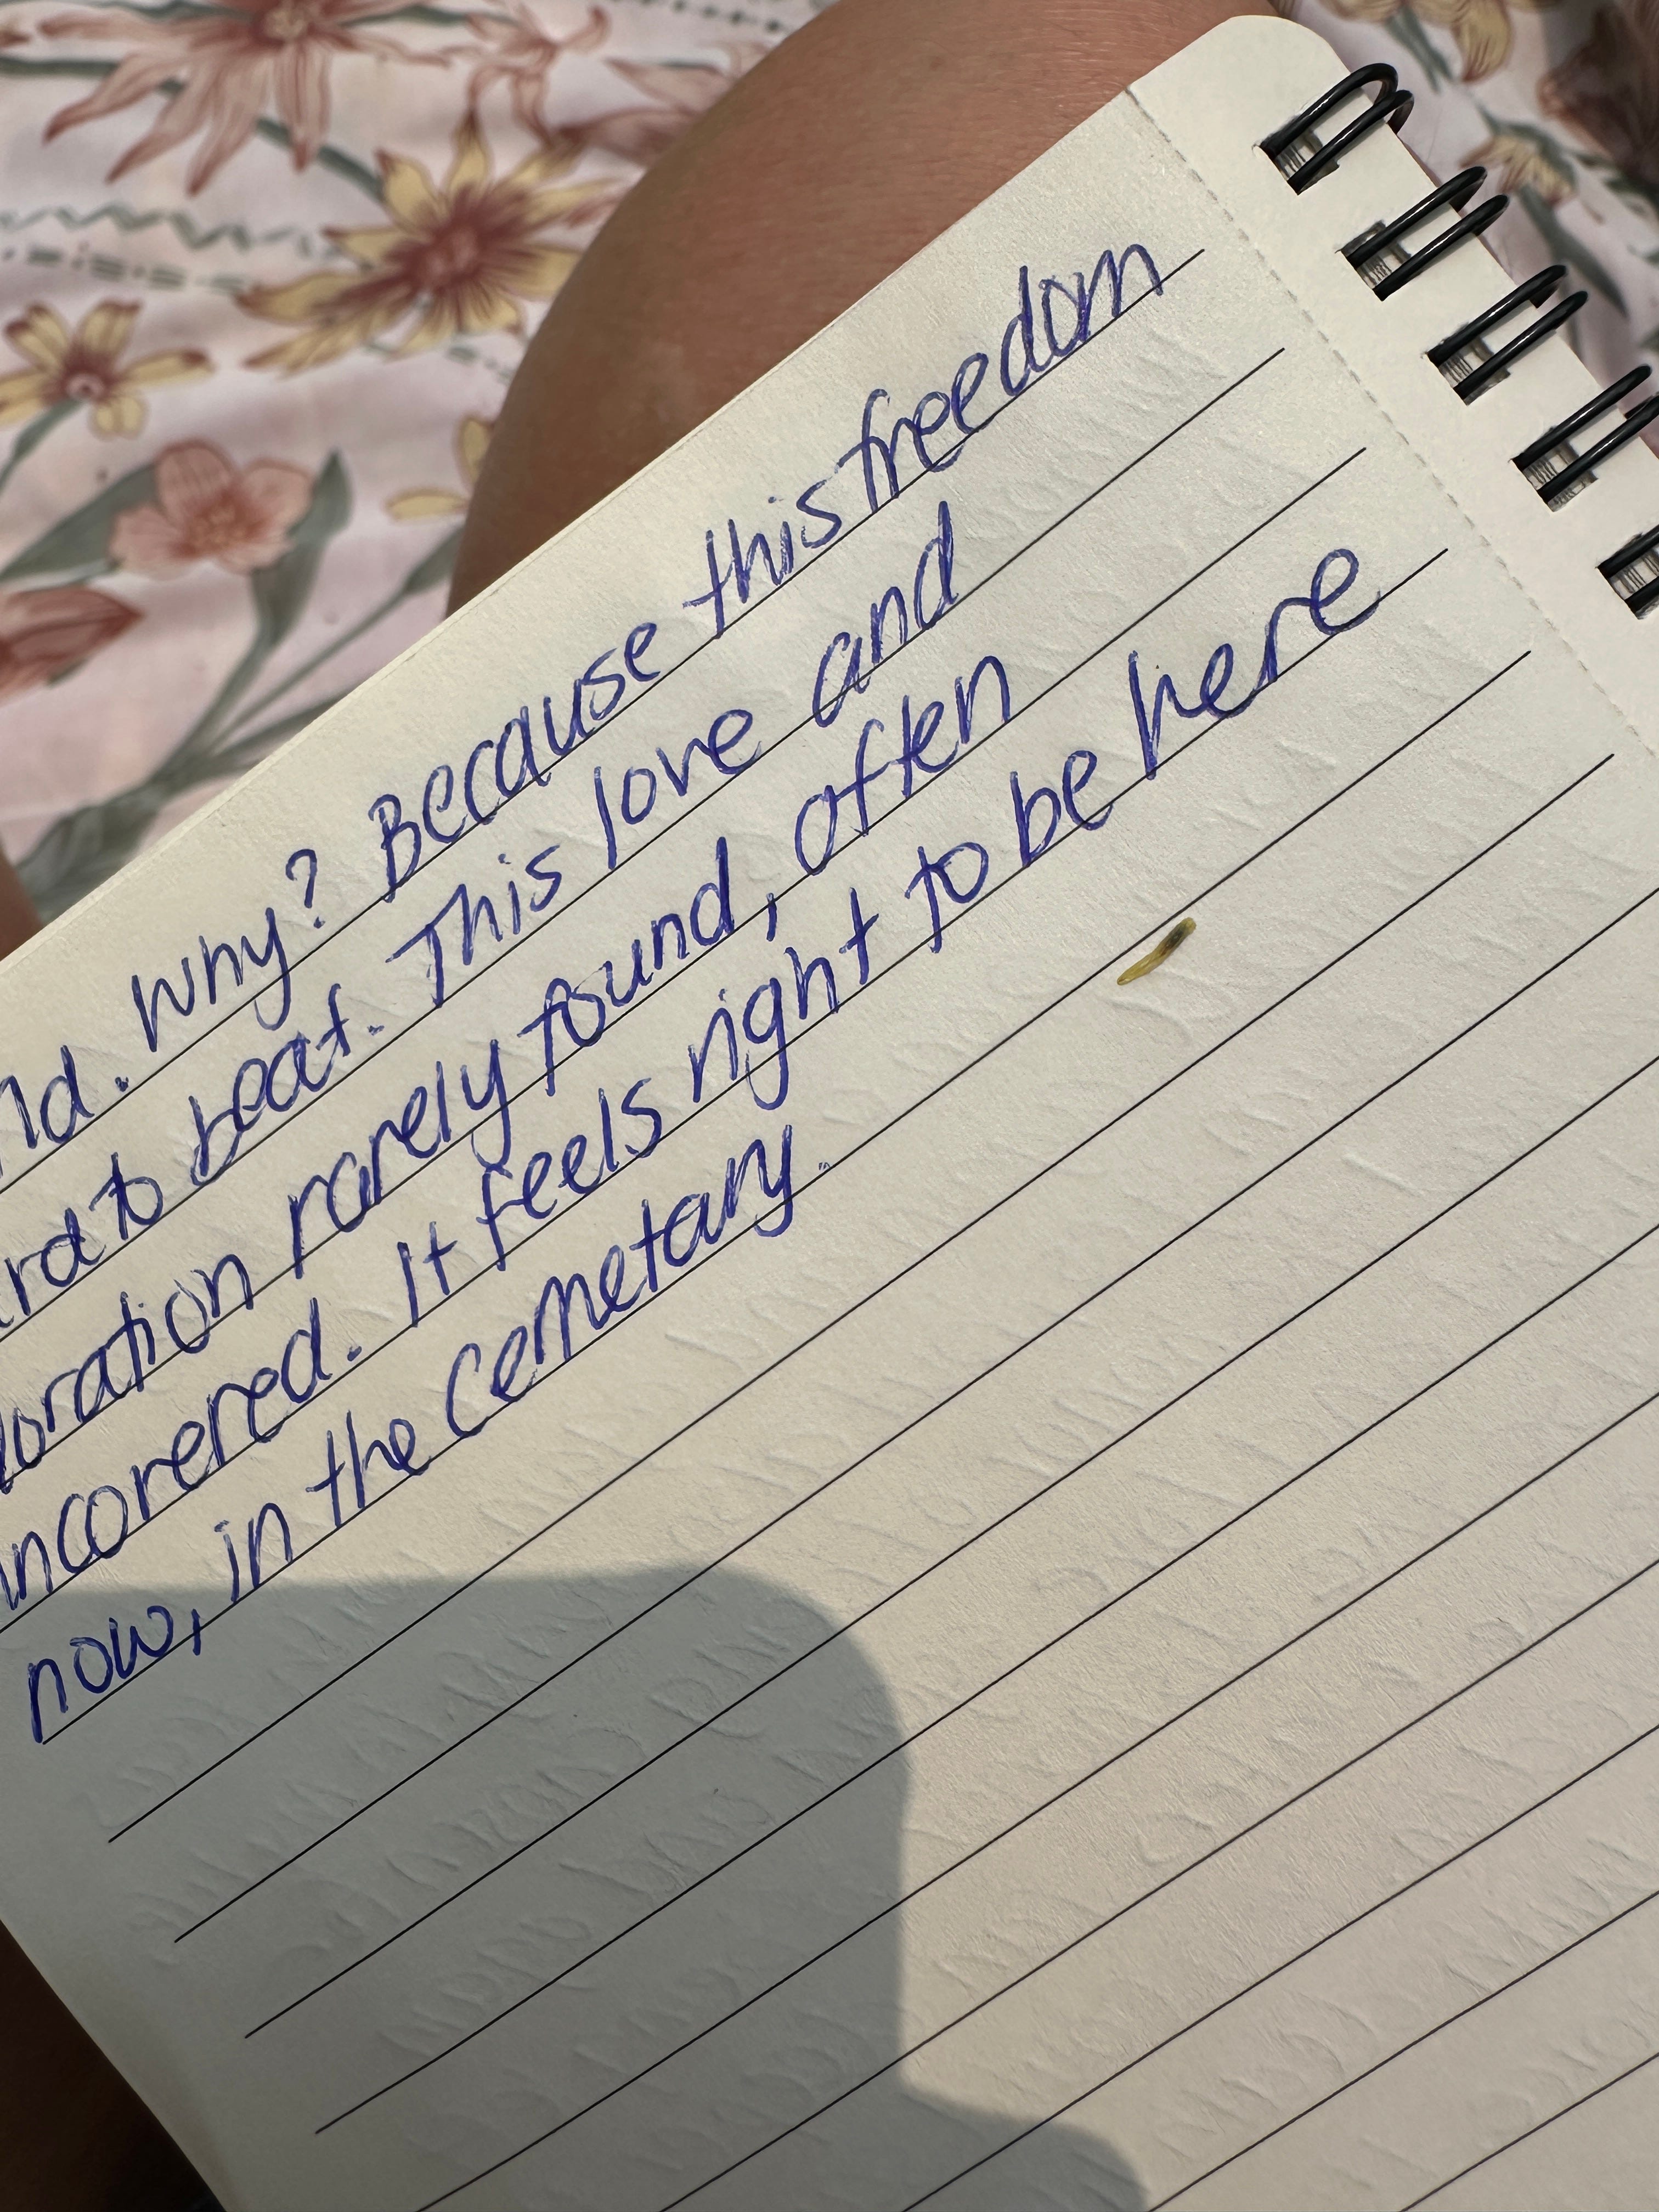 nd. Why? Because this freedom
rd to beat. This love and
loration rarely found, often
uncovered. It feels right to be here
now, in the cemetary.